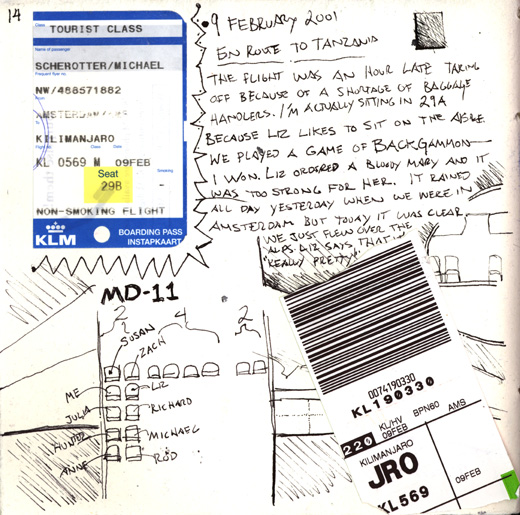 14
Class
TOURIST CLASS
Name of passenger
SCHEROTTER/MICHAEL
Frequent flyer no.
NW/488571882
From
AMSTERDAM
To
KILIMANJARO
Flight Class Date
KL 0569 M 09FEB
Seat
29B
Smoking
NON-SMOKING FLIGHT
KLM
BOARDING PASS
INSTAPKAART
9 FEBRUARY 2001
EN ROUTE TO TANZANIA
THE FLIGHT WAS AN HOUR LATE TAKING
OFF BECAUSE OF A SHORTAGE OF BAGGAGE
HANDLERS. I'M ACTUALLY SITTING IN 29A
BECAUSE LIZ LIKES TO SIT ON THE AISLE.
WE PLAYED A GAME OF BACKGAMMON—
I WON. LIZ ORDERED A BLOODY MARY AND IT
WAS TOO STRONG FOR HER. IT RAINED
ALL DAY YESTERDAY WHEN WE WERE IN
AMSTERDAM BUT TODAY IT WAS CLEAR.
WE JUST FLEW OVER THE
ALPS. LIZ SAYS THAT IS
"REALLY PRETTY"
MD-11
2 4 2
SUSAN
ZACH
ME
LIZ
JULIA
RICHARD
HUNTER
MICHAEL
ANNE
ROD
0074190330
KL190330
220
KL/HV BPN60 AMS
09FEB
KILIMANJARO
JRO
09FEB
KL569